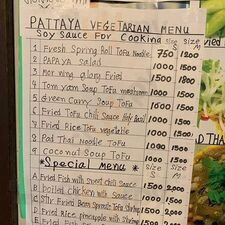 PATTAYA VEGETARIAN MENU
Soy Sauce For Cooking SIZE S SIZE M
1 Fresh Spring Roll Tofu Noodle 750 1200
2 PAPAYA Salad 1000 1500
3 Morning glory Fried 1500 1800
4 Tom yam Soup Tofu mushroom 1000 1500
5 Green Curry Soup Tofu 1000 1500
6 Fried Tofu Chili Sauce Holy Basil 1000 1500
7 Fried Rice Tofu vegetable 1000 1500
8 Pad Thai Noodle Tofu 1000 1500
9 Coconut Soup Tofu 1000 1500
*Special Menu* SIZE S SIZE M
A Fried Fish with Sweet Chili Sauce 1500 2000
B Boiled Chicken with Sauce 1000 1500
C Stir Fried Bean Sprouts Tofu Shrimp 1500 2000
D Fried Rice pineapple with Shrimp 1500 2000
E Fried Fish